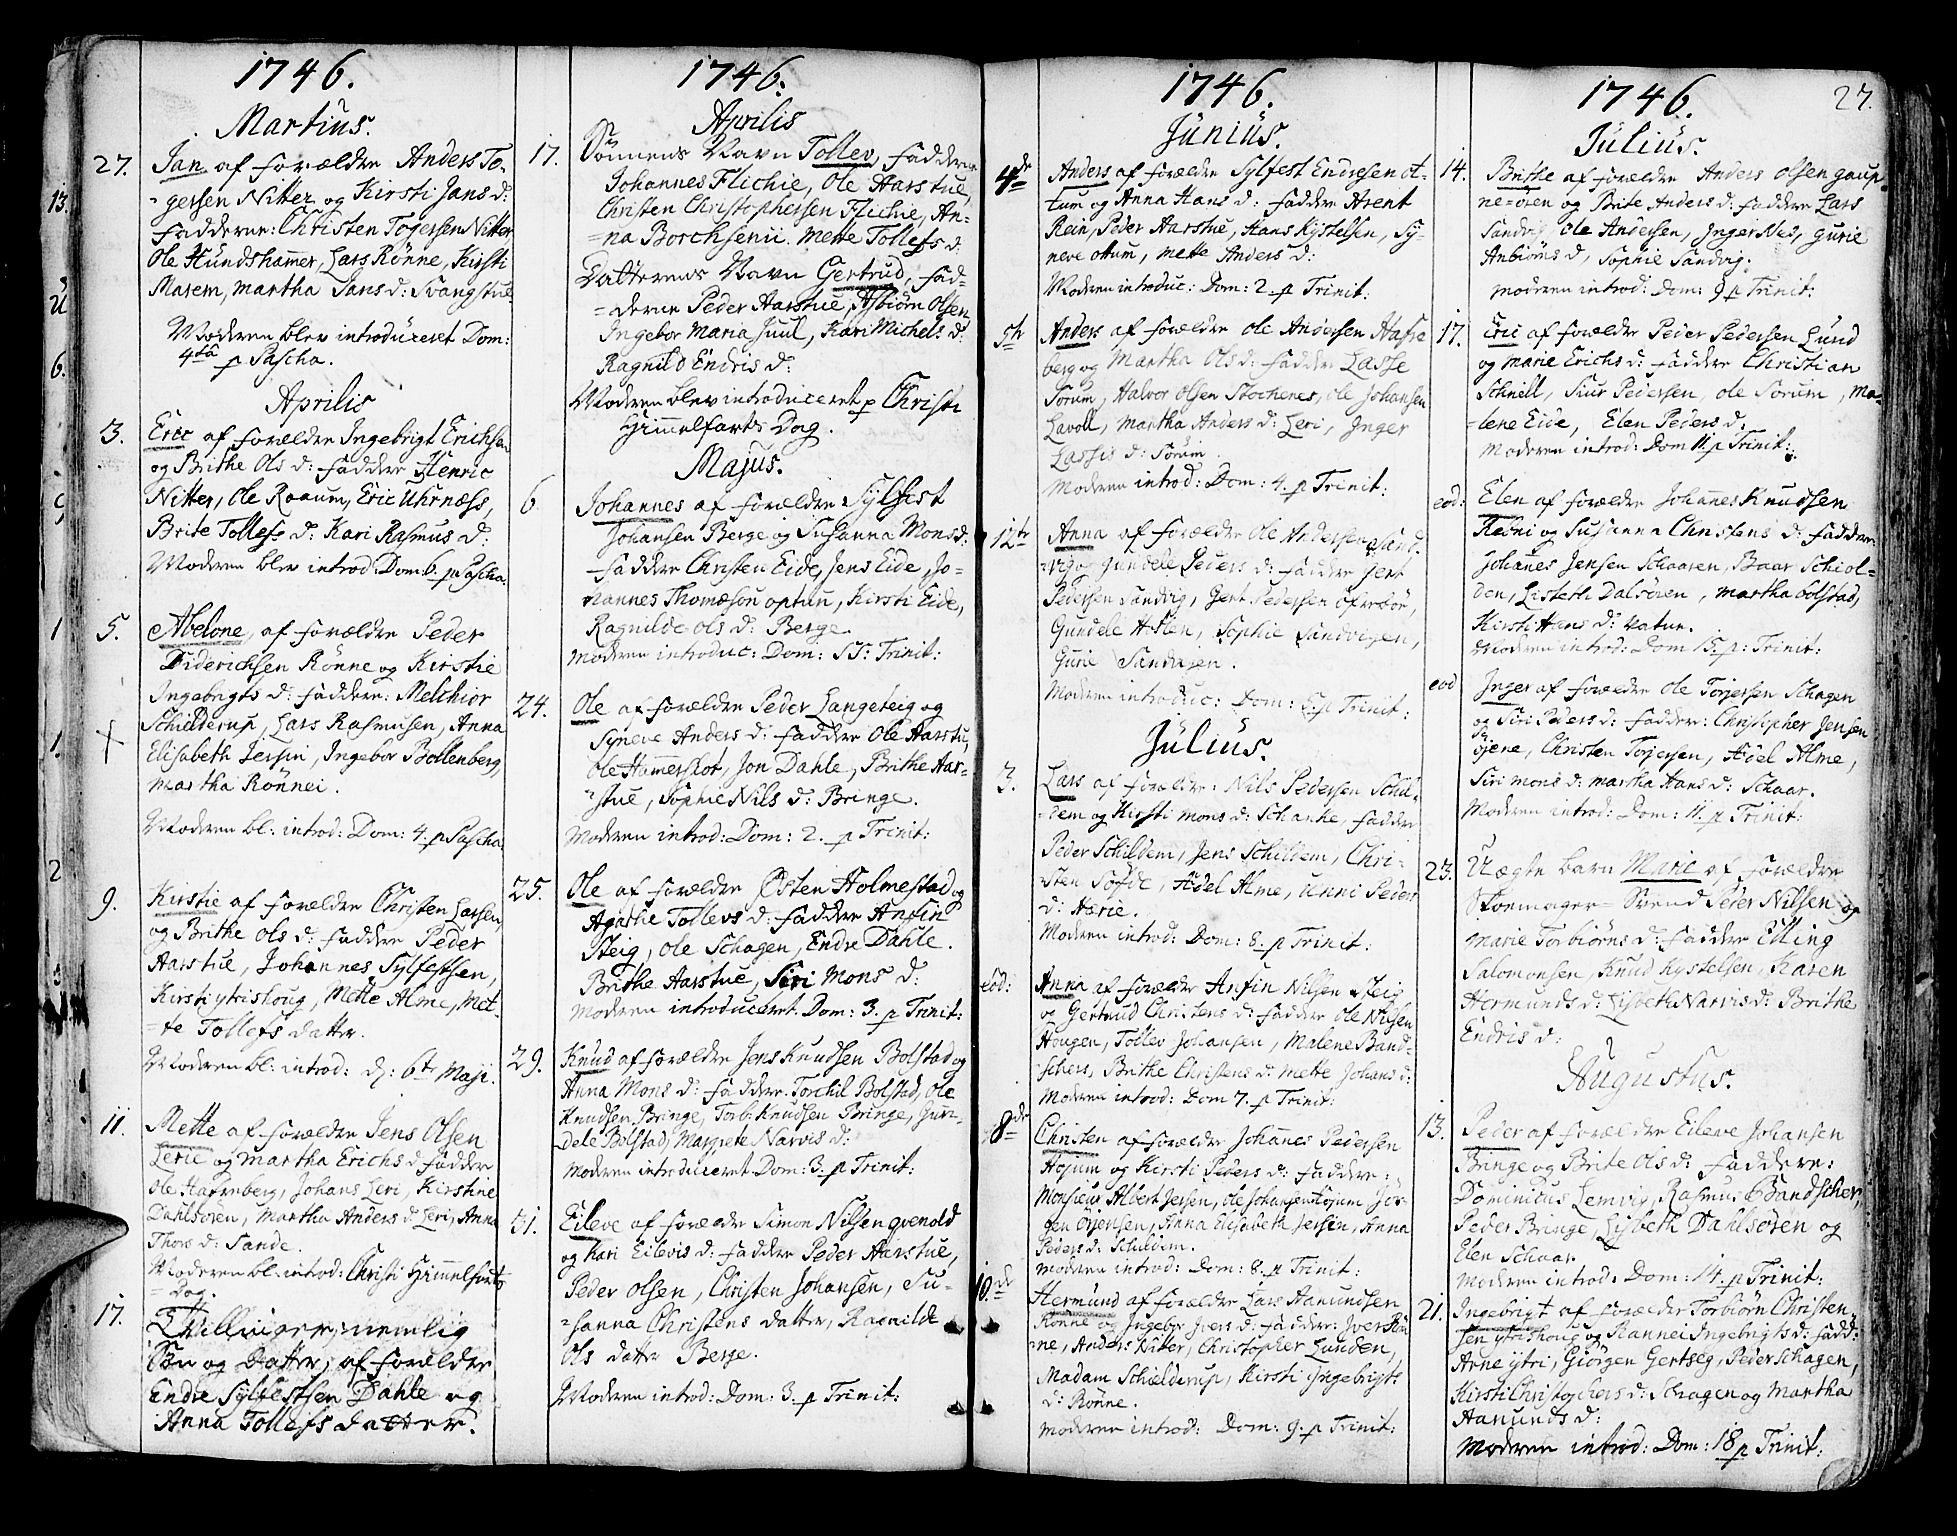 1746.
Martius.
27. Jan af forældre Anders To-
gersen Nitter og Kirsti Jans d:
Fadderne: Christen Togersen Nitter
Ole Hundshamer, Lars Rönne, Kirsti
Marem, Martha Jans d: Svangstue
Moderen blev introduceret Dom:
4ta p Pascha.
Aprilis
3. Eric af forældre Ingebrigt Erichsen
og Brithe Ols d: faddere Henric
Nitter, Ole Roaum, Eric Uhrnæss,
Brite Tollefs d: Kari Rasmus d:
Moderen blev introd Dom: 6. p Pascha.
5. Abelone, af forældre Peder
Diderichsen Rönne og Kirstie
Ingebrigts d: faddere: Melchior
Schilderup, Lars Rasmusen, Anna
Elisabeth Jersin, Ingebor Bollenberg,
Martha Rönnei.
Moderen bl: introd: Dom: 4. p Pascha.
9. Kirstie af forældre Christen Larsen,
og Brithe Ols d: faddere Peder
Aarstue, Johannes Sylfestsen,
Kirsti ytriskoug, Mette Alme, Met-
te Tollefs datter.
Moderen bl: introd: d: 6te Maji.
11. Mette af forældre Jens Olsen
Lerie og Martha Erichs d: faddere
Ole Hafsenberg, Johans Leri, Kirstine
Dahlsören, Martha Anders d: Leri, Anna
Thors d: Sande.
Moderen bl: introd: Christi Himmelfarts
= Dag.
17. Tvillinger, nemlig
Sön og Datter, af forældre
Endre Sylfestsen Dahle og
Anna Tollefs datter.
1746.
Aprilis
17. Sönnens Navn Tollev, faddere
Johannes Flichie, Ole Aarstue,
Christen Christophersen Flichie, An-
=na Borchsenii. Mette Tollefs d:
Datterens Navn Gertrud, fad-
=derne Peder Aarstue, Asbiörn Olsen
Ingebor Maria Juul, Kari Michels d:
Ragnild Endris d:
Moderen blev introduceret p Christi
Himmelfarts Dag.
Majus.
6 Johannes af forældre Sylfest
Johansen Berge og Susanna Mons d:
Faddere Christen Eide, Jens Eide, Jo-
hannes Thomæson optun, Kirsti Eide,
Ragnilde Ols d: Berge
Moderen introduc: Dom: SS: Trinit:
24. Ole af forældre Peder Langeteig og
Syneve Anders d: faddere Ole Aarstu,
Ole Hamerslot, Jon Dahle, Brithe Aar-
stue, Sophie Nils d: Bringe.
Moderen introd: Dom: 2. p Trinit:
25. Ole af forældre Östen Holmestad og
Agathe Tollevs d: faddere Anfin
Steig, Ole Schagen, Endre Dahle.
Brithe Aarstue, Siri Mons d:
Moderen introduceret Dom: 3. p Trinit:
29. Knud af forældre Jens Knudsen Bolstad og
Anna Mons d: faddere Torchil Bolstad, Ole
Knudsen Bringe, Torb: Knudsen Bringe, Gun-
dele Bolstad, Margrete Narvis d:
Moderen introduceret Dom: 3. p Trinit:
31. Eileve af forældre Simon Nilsen qvenold
og Kari Eilevis d: faddere Peder Aarstue,
Peder Olsen, Christen Johansen, Su-
=sanna Christens datter, Ragnilde
Ols datter Berge.
Moderen introd: Dom: 3. p Trinit:
1746.
Junius.
4de Anders af forældre Sylfest Endresen ot-
tum og Anna Hans d: faddere Arent
Rein, Peder Aarstue, Hans Kystelsen, Sy-
neve ottum, Mette Anders d:
Moderen introduc: Dom: 2. p Trinit:
5te Anders af forældre Ole Andersen Hafse
berg og Martha Ols d: faddere Lasse
Sorum, Halvor Olsen Stochenes, Ole Johansen
Lavoll, Martha Anders d: Leri, Inger
Lassis d: Sorum.
Moderen introd: Dom: 4. p Trinit:
12te Anna af forældre Ole Andersen Sand-
vig og Gundele Peders d: faddere Gert
Pedersen Sandvig, Gert Pedersen
Gundele, Sophie Sandvigen,
Gurie Sandvigen.
Moderen introduc: Dom: 5. p Trinit:
Julius.
3. Lars af forældre: Nils Pedersen Schil-
dem og Kirsti Mons d: Schanke, faddere
Peder Schildem, Jens Schildem, Chri-
sten Sofde, Ædel Alme, Unni Peders
d: Hærie.
Moderen introd: Dom: 8. p Trinit:
eod: Anna af forældre Anfin Nilsen Steig
og Gertrud Christens d: faddere Ole Nilsen
Hougen, Tollev Johansen, Malene Band-
schers, Brithe Christens d: Mette Johans d:
Moderen introd: Dom 7. p Trinit:
8de Christen af forældre Johanes Pedersen
Hojum og Kirsti Peders d: faddere:
Monsieur Albert Jersen, Ole Johansen Hojum, Jör-
gen Örjensen, Anna Elisabeth Jersin, Anna
Peders d: Schildem.
Moderen introd: Dom: 8. p Trinit:
10.de Hermund af forældre Lars Aamundsen
Rönne og Ingebor Ivers d: faddere: Iver Rön
ne, Anders Nitter, Christopher Lunden,
Madam Schielderup, Kirsti Ingebrigts
d: Rönne.
Moderen introd: Dom: 9. p Trinit:
1746. 27.
Julius.
14. Brithe af forældre Anders Olsen gaup-
ne=ören og Brite Anders d: faddere Lars
Sandvig Ole Andersen, Inger Nes, Gurie
Anbiörns d, Sophie Sandvig.
Moderen introd: Dom: 9 p Trinit:
17. Eric af forældre Peder Pedersen Lund
og Marie Erichs d: faddere Christian
Schnell, Siur Pedersen, Ole Sorum, Ma-
=lene Eide, Elen Peders d:
Moderen introd: Dom 11. p Trinit:
eod: Elen af forældre Johanes Knudsen
Rebni og Susanna Christens d: faddere:
Johanes Jensen Schaaren, Baar Schiol-
den, Lisbeth Dalsören, Martha bolstad,
Kirsti Hans d: Vatun.
Moderen introd: Dom 15. p: Trinit:
eod Inger af forældre Ole Torjersen Schagen
og Siri Peders d: faddere: Christopher Jensen
öjene, Christen Torjersen, Ædel Alme,
Siri Mons d: Martha Hans d: Schaar.
Moderen introd: Dom: 11. p Trinit:
23. Uægte barn Marie af forældre
Skoemager=Svend Peder Nilsen og
Marie Torbiörns d: faddere Elling
Salomonsen, Knud Kystelsen, Karen
Hermunds d: Lisbeth Narvis d: Brithe
Endris d:
Augustus.
13. Peder af forældre Eileve Johansen
Bringe og Brite Ols d: faddere:
Dominicus Lemvig, Rasmus Bandscher,
Peder Bringe, Lisbeth Dahlsören og
Elen Schaar.
Moderen introd: Dom: 14. p Trinit:
21. Ingebrigt af forældre Torbiörn Christen-
sen ytriskoug og Rannei Ingebrigts d: fadd:
Arne ytri, Giörgen Gertseg, Peder Schagen,
Kirsti Christophers d: Schagen og Martha
Aamunds d:
Moderen introd: Dom: 18 p Trinit: